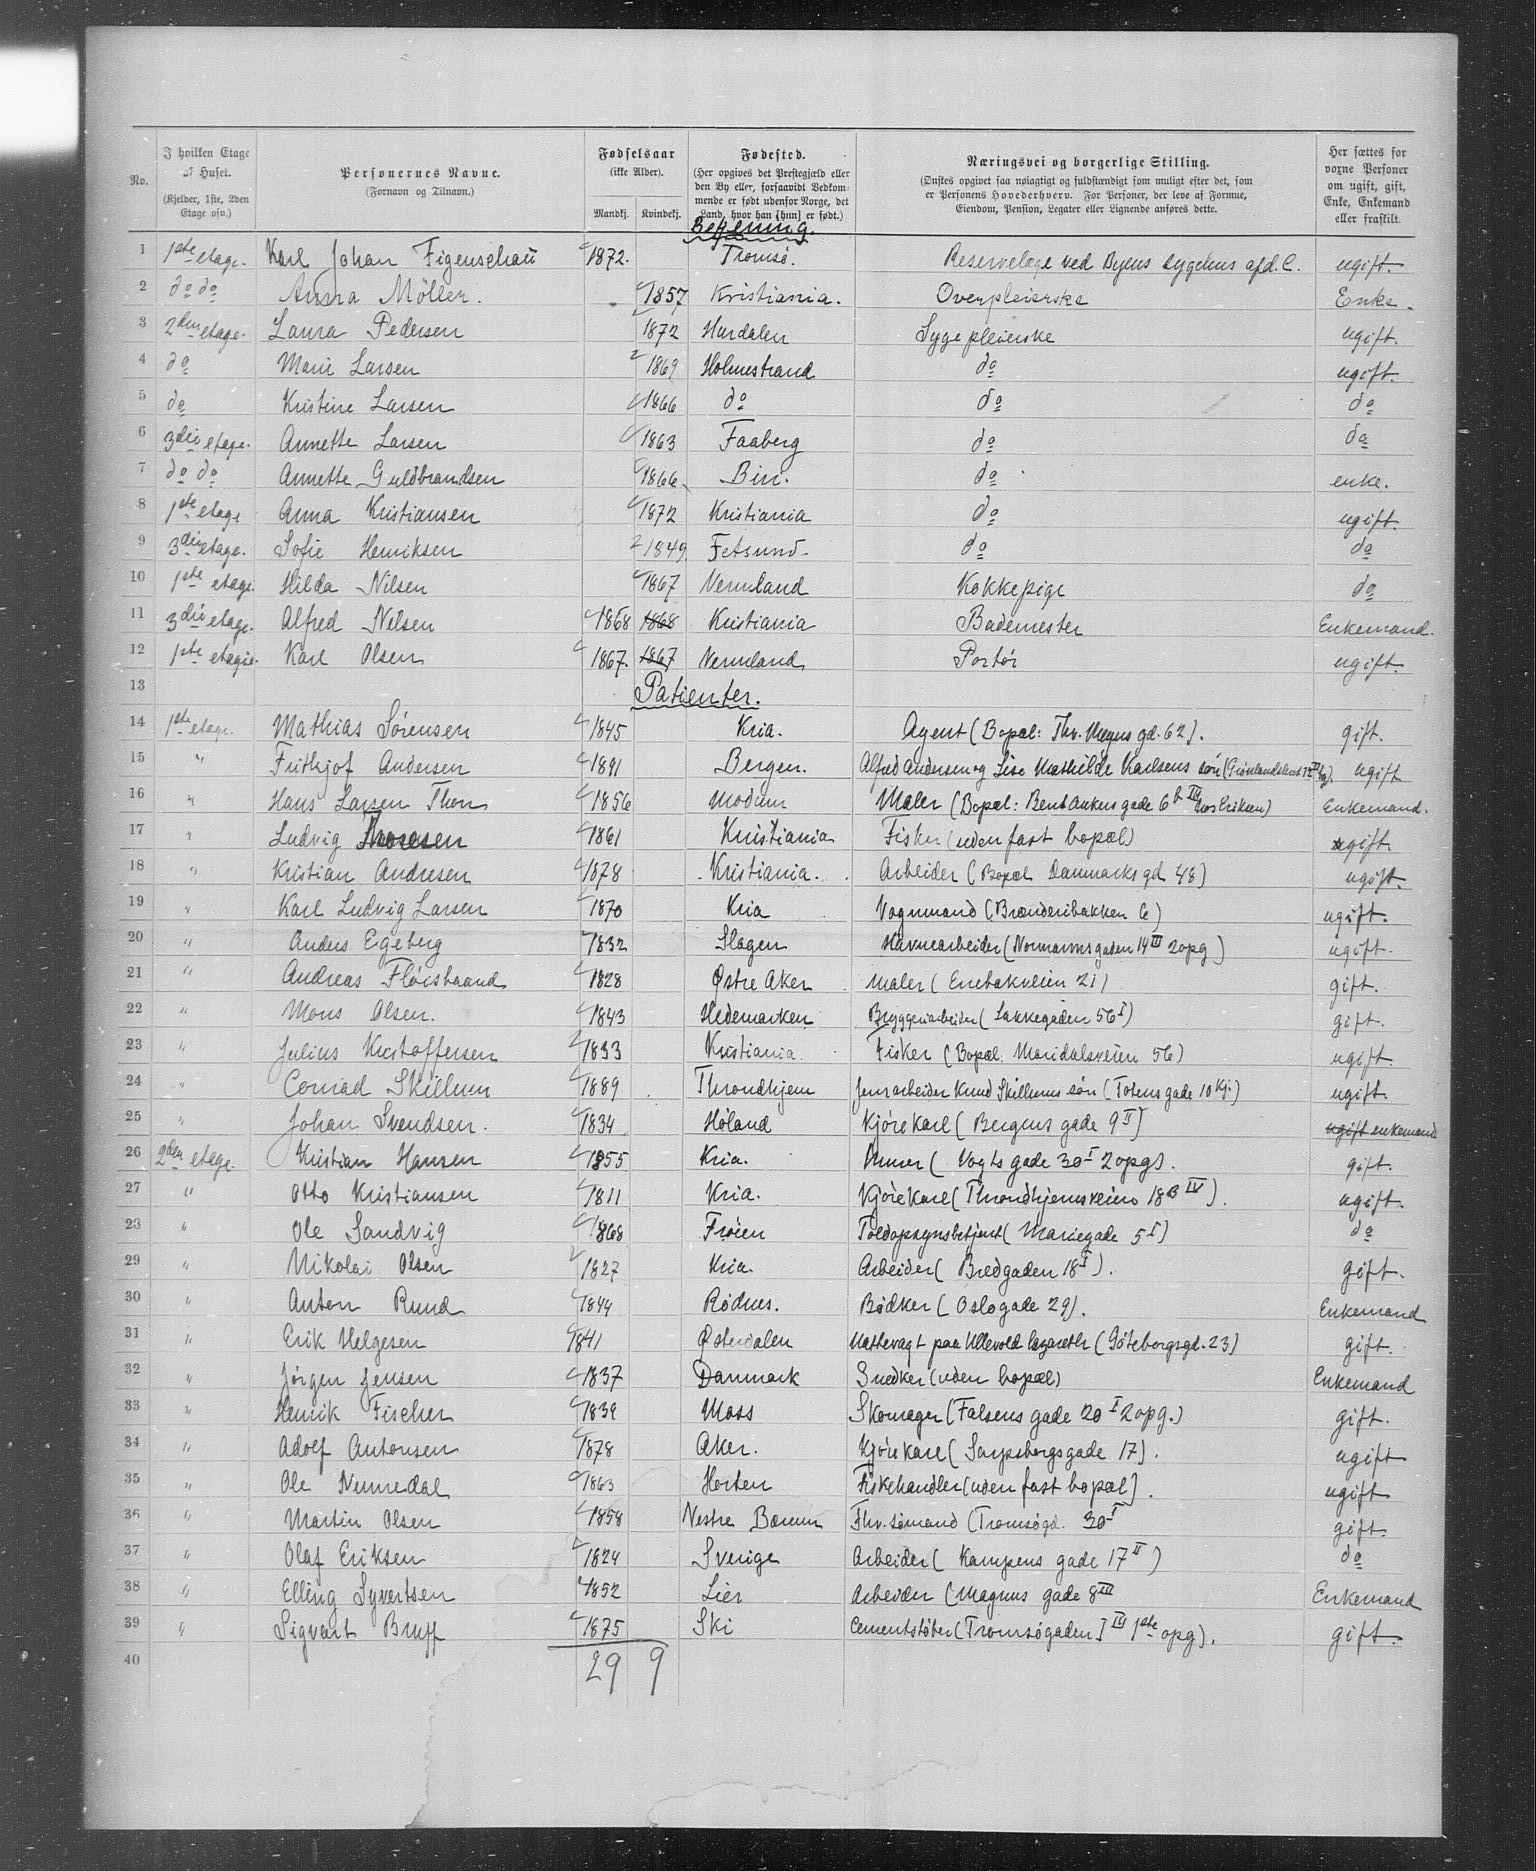 No. | I hvilken Etage af Huset. (Kjelder, 1ste, 2den Etage osv.) | Personernes Navne. (Fornavn og Tilnavn.) | Fødselsaar (ikke Alder). Mandkj. | Kvindekj. | Fødested. (Her opgives det Prestegjæld eller den By eller, forsaavidt Vedkommende er født udenfor Norge, det Land, hvor han [hun] er født.) | Næringsvei og borgerlige Stilling. (Ønskes opgivet saa nøiagtigt og fuldstændigt som muligt efter det, som er Personens Hovederhverv. For Personer, der leve af Formue, Eiendom, Pension, Legater eller Lignende anføres dette. | Her sættes for voxne Personer om ugift, gift, Enke, Enkemand eller fraskilt.
Betjening.
1 1ste etage. Karl Johan Figenschau 1872. Tromsø. Reservelæge ved Byens sygehus afd. C. ugift.
2 do do Anna Möller. 1857 Kristiania. Overpleierske Enke.
3 2den etage. Laura Pedersen 1872 Hurdalen Sygepleierske ugift.
4 do Marie Larsen 1869 Holmestrand do ugift.
5 do Kristine Larsen 1866 do do do
6 3die etage. Annette Larsen 1863 Faaberg do do
7 do do Annette Guldbrandsen 1866 Biri. do enke.
8 1ste etage Anna Kristiansen 1872 Kristiania do ugift.
9 3die etage. Sofie Henriksen 1849 Fetsund. do do
10 1ste etage. Hilda Nilsen 1867 Vermland Kokkepige do
11 3die etage. Alfred Nilsen 1868 1868 Kristiania Bademester Enkemand.
12 1ste etage. Karl Olsen 1867. 1867 Vermland Portør ugift.
13 Patienter.
14 1ste etage. Mathias Sørensen 1845 Kria. Agent (Bopæl: Thv. Meyers gd. 62). gift.
15 " Frithjof Andersen 1891 Bergen. Alfred Andersen og Lise Mathilde Karlsens søn ugift
16 " Hans Larsen Thon 1856 Modum Maler (Bopæl: Bent Ankers gade 6b III hos Eriksen) Enkemand.
17 " Ludvig Thoresen 1861 Kristiania Fisker (uden fast bopæl) gift.
18 " Kristian Andresen 1878 Kristiania. Arbeider (Bopæl Danmarks gd 48) ugift.
19 " Karl Ludvig Larsen 1870 Kria Vognmand (Brænderibakken 6) ugift.
20 " Anders Egeberg 1832 Slagen Havnearbeider (Normannsgaden 14 III 2opg) ugift.
21 " Andreas Fløistraand 1828 Østre Aker Maler (Enebakveien 21) gift.
22 " Mons Olsen. 1843 Hedemarken Bryggeriarbeider (Lakkegaden 56 I) gift.
23 " Julius Kristoffersen 1833 Kristiania. Fisker (Bopæl. Maridalsveien 56) ugift.
24 " Conrad Skillum 1889 Throndhjem Jernarbeider Knud Skillums søn (Totens gade 10 Kj.) ugift.
25 " Johan Svendsen. 1834 Høland Kjørekarl (Bergens gade 9 II) ugift enkemand
26 2den etage. Kristian Hansen 1855 Kria. Murer (Vogts gade 30 I 2opg). gift.
27 " Otto Kristiansen 1811 Kria. Kjørekarl (Throndhjemsveien 18B IV). ugift.
28 " Ole Sandvig 1868 Frøien Toldopsynsbetjent (Mariegade 5 I) do
29 " Nikolai Olsen 1827 Kria. Arbeider (Bredgaden 18 I). gift.
30 " Anton Ruud 1844 Rødnes. Bødker (Oslogade 29). Enkemand
31 " Erik Helgesen 1841 Østerdalen Nattevagt paa Ullevold lazareth (Göteborgsgd. 23) gift.
32 " Jørgen Jensen 1837 Danmark Snedker (uden bopæl) Enkemand
33 " Henrik Fischer 1839 Moss Skomager (Falsens gade 20 I 2opg.) gift.
34 " Adolf Antonsen 1878 Aker. Kjørekarl (Sarpsborgsgade 17). ugift
35 " Ole Numedal 1863 Horten Fiskehandler (uden fast bopæl). ugift
36 " Martin Olsen 1858 Vestre Bærum Fhv. sømand (Tromsøgd. 30 I gift.
37 " Olaf Eriksen 1824 Sverige Arbeider (Kampens gade 17 II) do
38 " Elling Syvertsen 1852 Lier Arbeider (Magnus gade 8 III Enkemand
39 " Sigvart Bruff 1875 Ski Cementstøber (Tromsøgaden 1ste opg). gift.
40 29 9